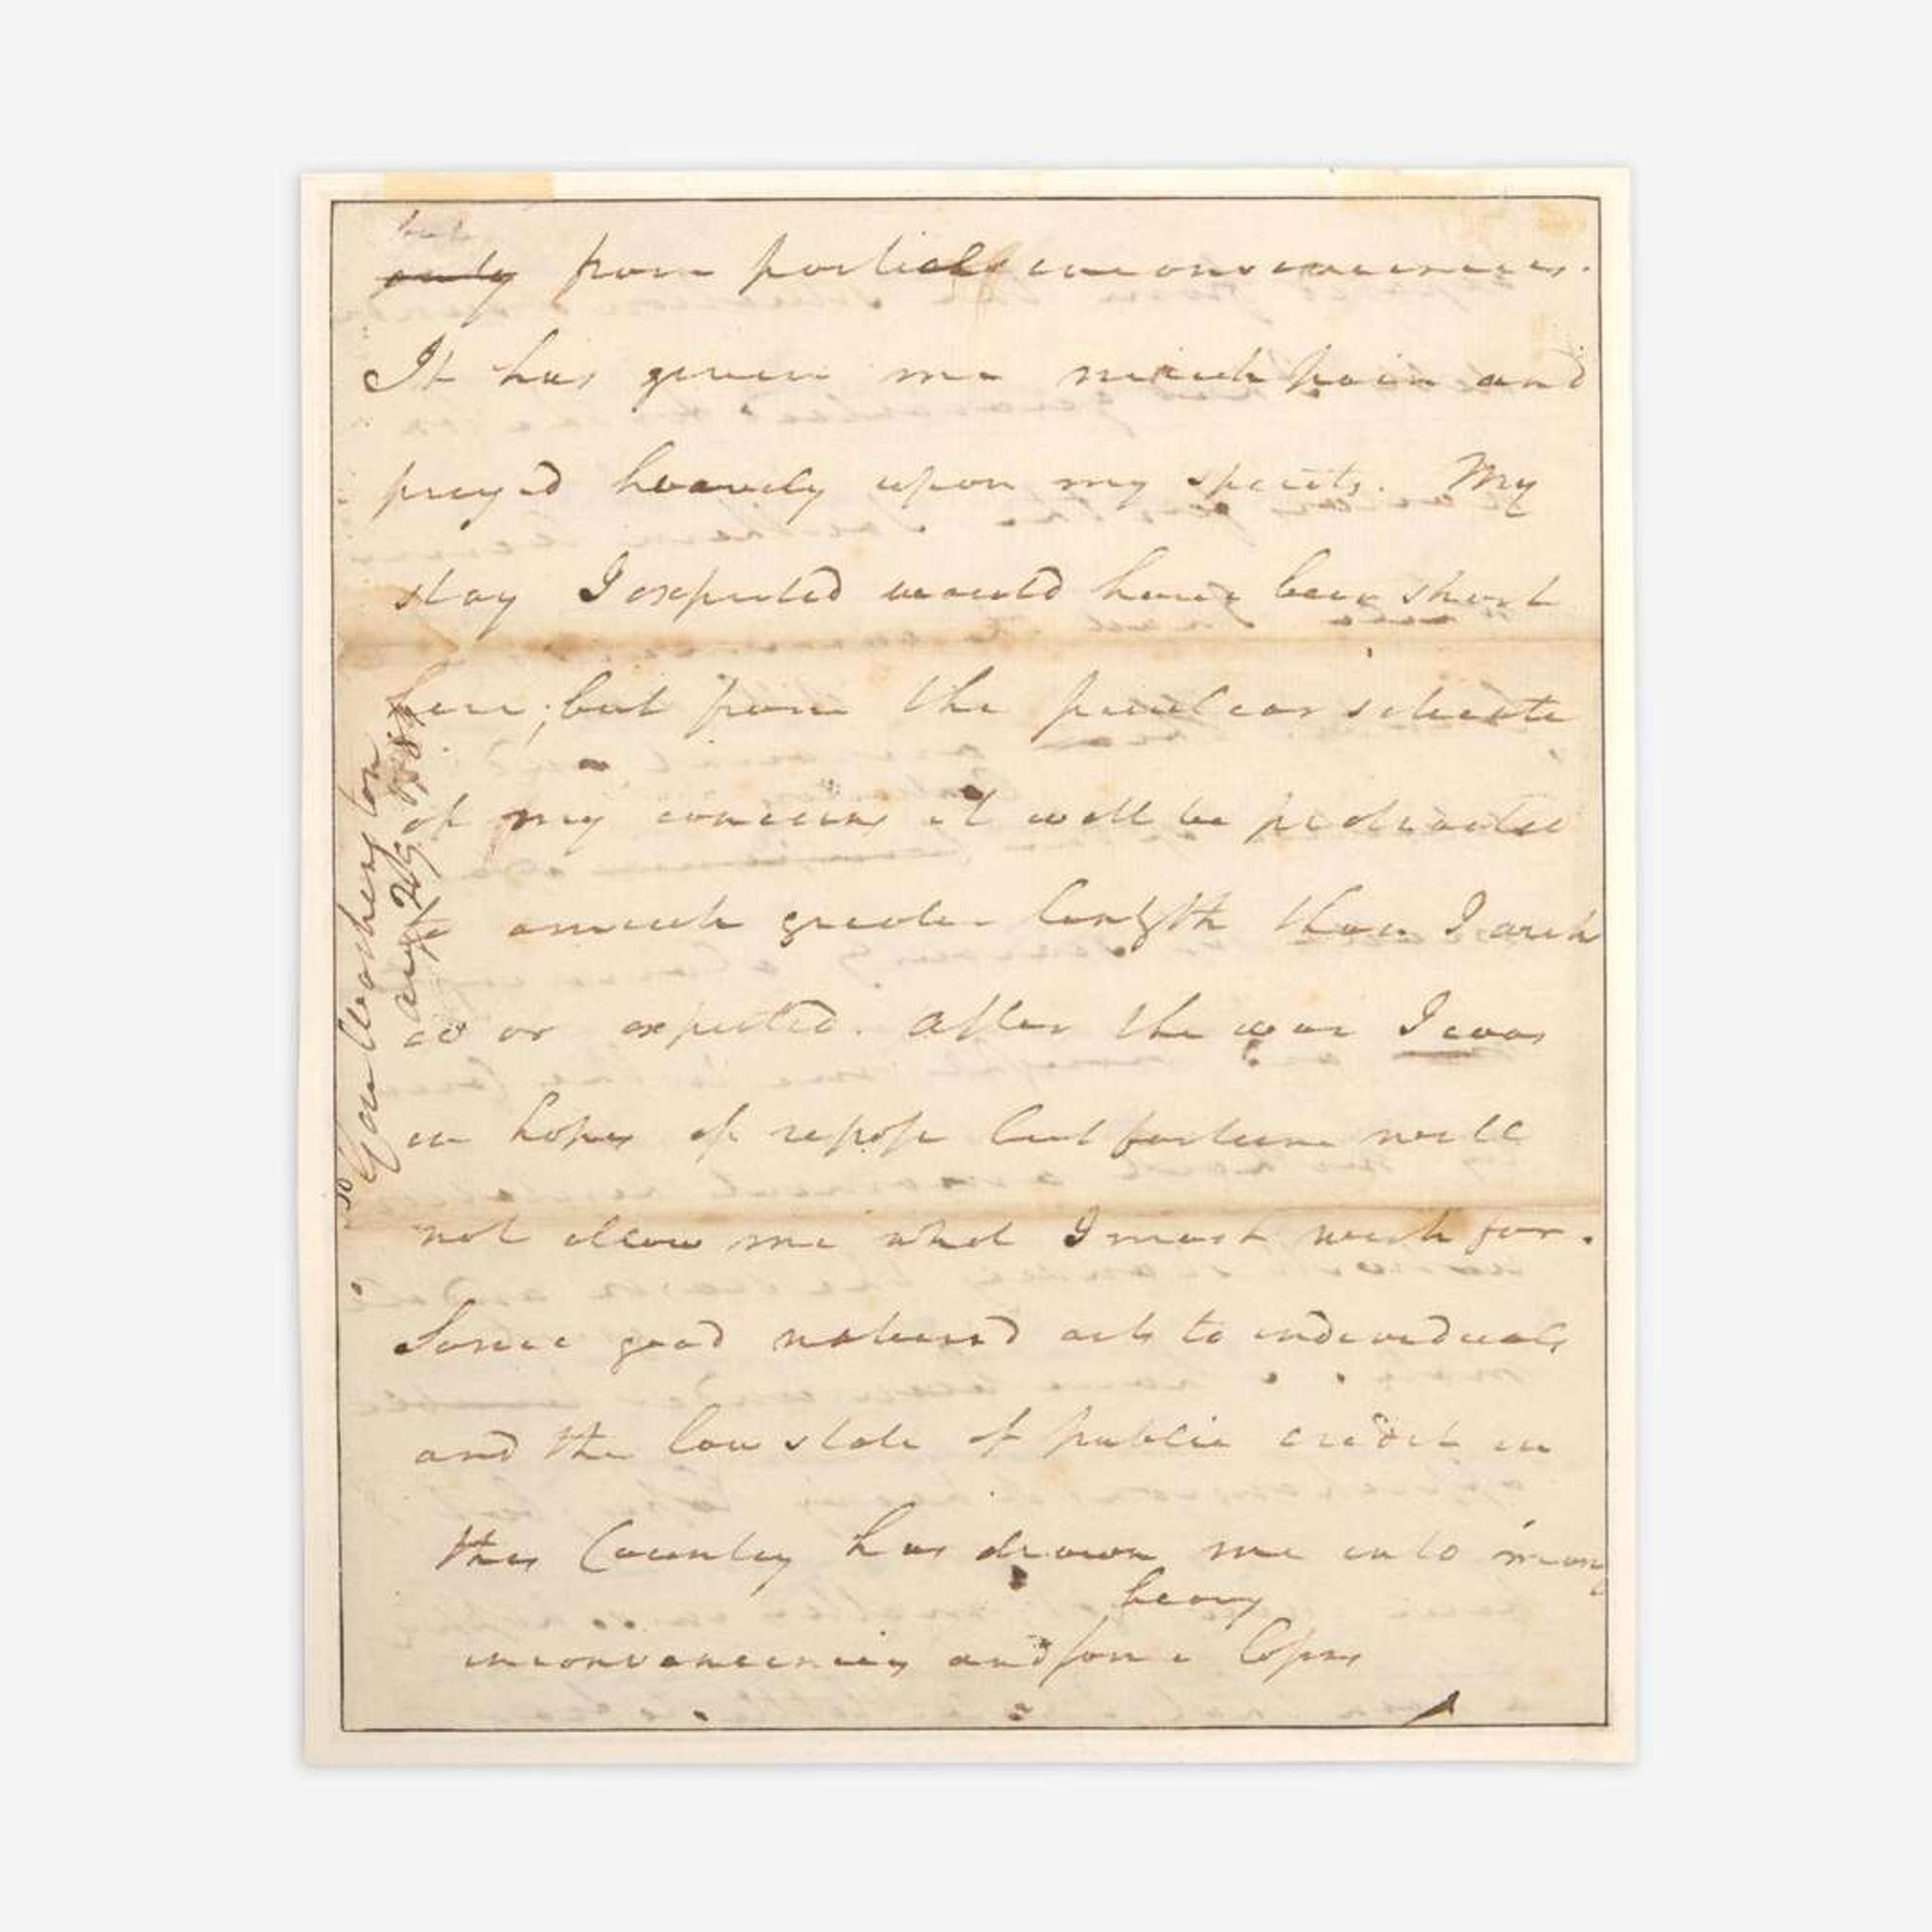 but
only from partial inconveniencies.
It has given me much pain and
preyed heavily upon my spirits. My
stay I expected would have been short
here; but from the peculiar situate
of my concerns it will be protracted
to a much greater length than I wish
ed or expected. After the war I was
in hopes of repose but fortune will
not allow me what I most wish for.
Some good natured acts to individuals
and the low state of public credit in
this Country has drawn me into many
heavy
inconveniencies and some losses
To Gen Washington
Aug 29 1784